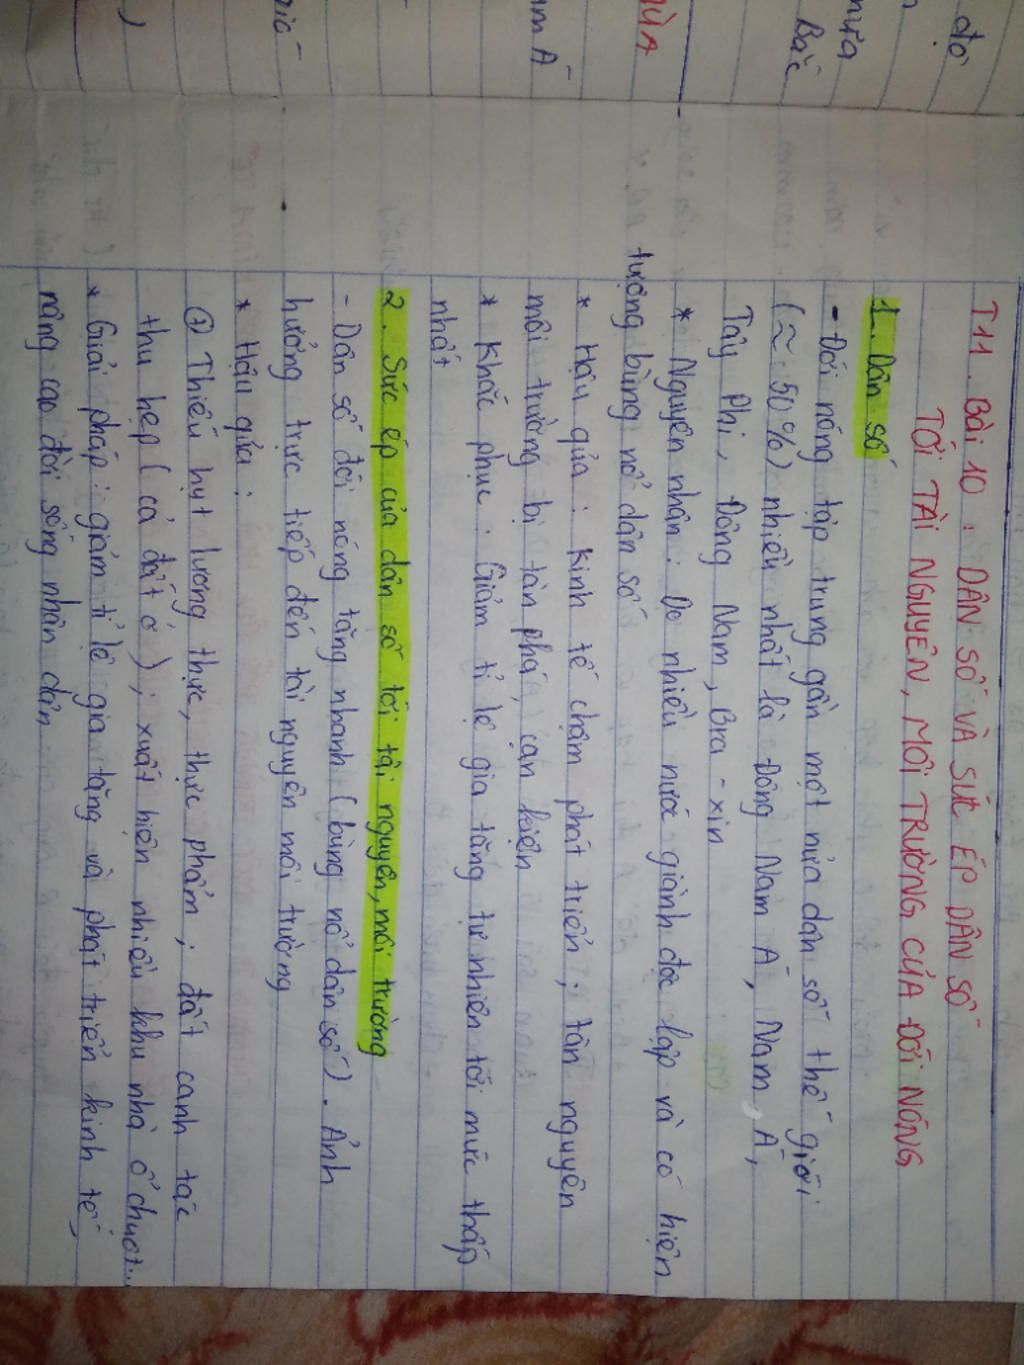 T11. Bài 10: DÂN SỐ VÀ SỨC ÉP DÂN SỐ
TỚI TÀI NGUYÊN, MÔI TRƯỜNG CỦA ĐỚI NÓNG
1. Dân số
- Đới nóng tập trung gần một nửa dân số thế giới
(≈ 50%) nhiều nhất là Đông Nam Á, Nam Á,
Tây Phi, Đông Nam, Bra-xin
* Nguyên nhân: Do nhiều nước giành độc lập và có hiện
tượng bùng nổ dân số
* Hậu qủa: Kinh tế chậm phát triển; tân nguyên
môi trường bị tàn phá, cạn kiện
* Khắc phục: Giảm tỉ lệ gia tăng tự nhiên tới mức thấp
nhất
2. Sức ép của dân số tới tài nguyên, môi trường
- Dân số đới nóng tăng nhanh (bùng nổ dân số). Ảnh
hưởng trực tiếp đến tài nguyên môi trường
* Hậu qủa:
+ Thiếu hụt lương thực, thực phẩm; đất canh tác
thu hẹp (cả đất ở); xuất hiện nhiều khu nhà ổ chuột...
* Giải pháp: giảm tỉ lệ gia tăng và phát triển kinh tế,
nâng cao đời sống nhân dân
độ
mưa
Bắc
MÙA
Á
gió
)